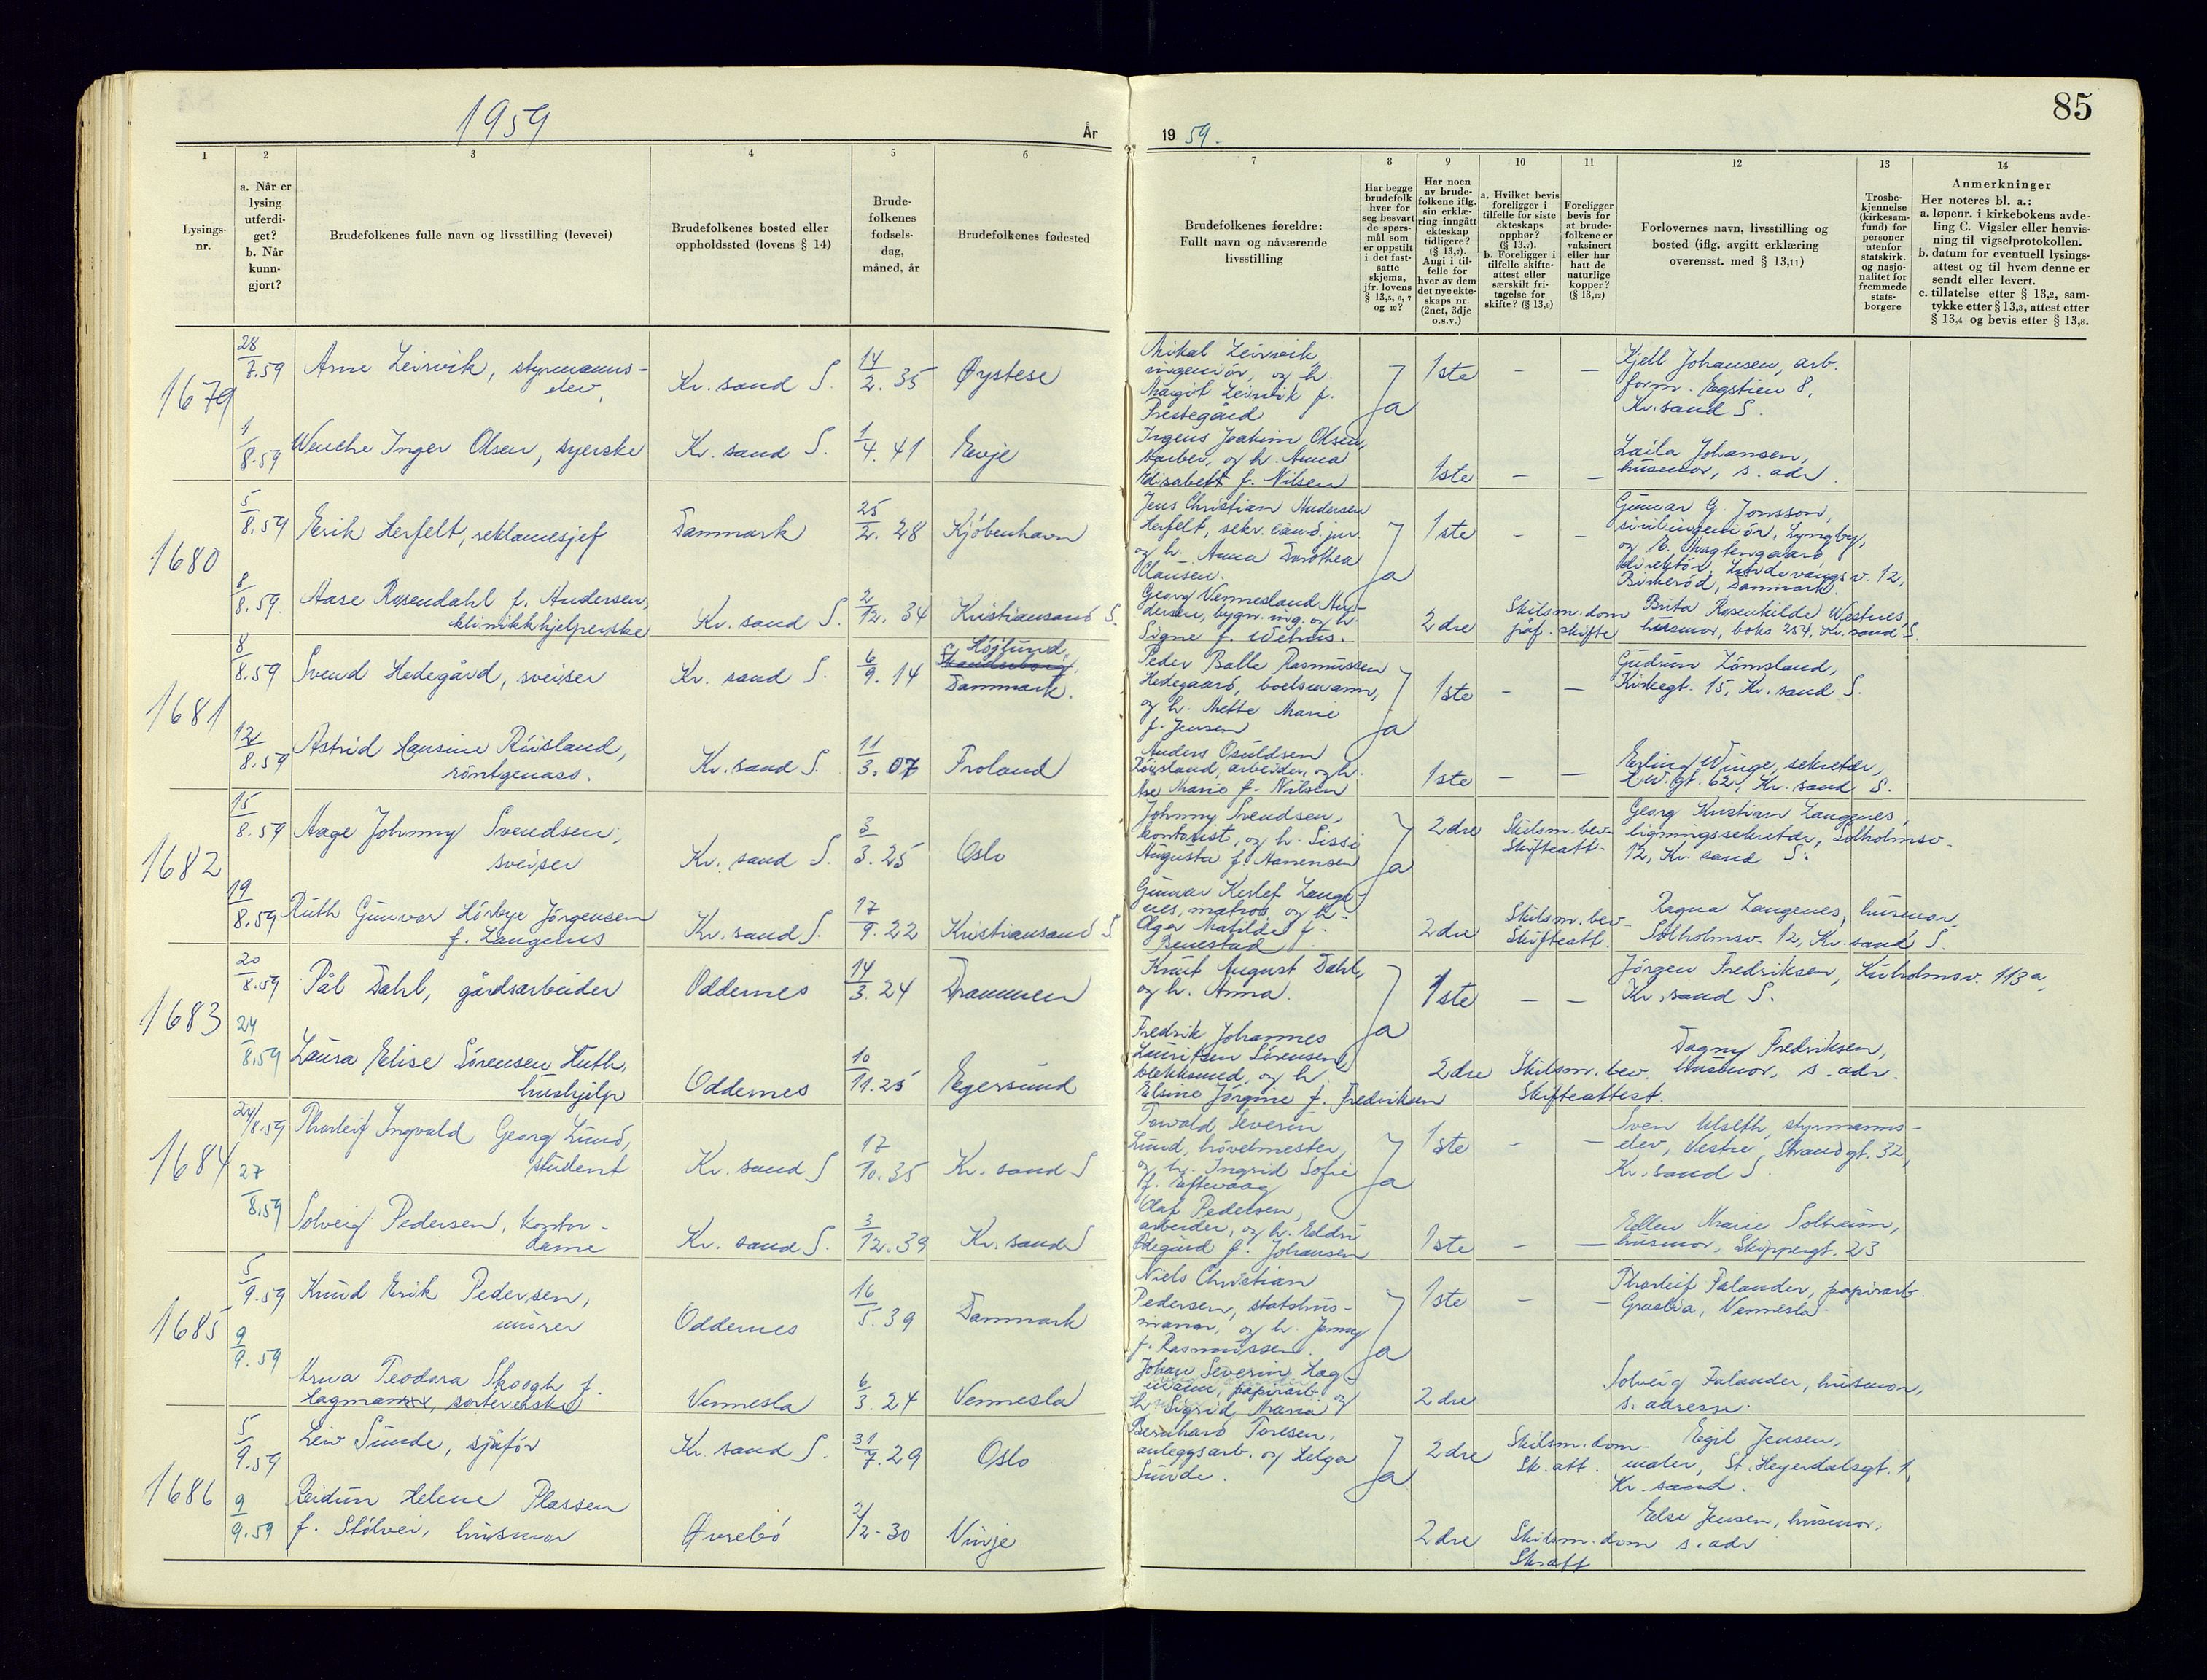 1959
År
1
2
3
4
5
6
Lysings-
nr.
a. Når er
lysing
utferdi-
get?
b. Når
kunn-
gjort?
Brudefolkenes fulle navn og livsstilling (levevei)
Brudefolkenes bosted eller
oppholdssted (lovens § 14)
Brude-
folkenes
fødsels-
dag,
måned, år
Brudefolkenes fødested
1679
28/7.59
Arne Leirvik, styrmanns-
elev,
Kr. sand S.
14/2.35
Øystese
1/8.59
Wenche Inger Olsen, syerske
Kr. sand S.
1/4.41
Evje
1680
5/8.59
Erik Herfelt, reklamesjef
Danmark
25/2.28
Kjøbenhavn
8/8.59
Aase Rosendahl f. Andersen,
klinikkhjelperske
Kr. sand S.
2/12.34
Kristiansand S.
1681
8/8.59
Svend Hedegård, sveiser
Kr. sand S.
6/9.14
Højlund,
Danmark.
12/8.59
Astrid Hansine Röisland,
röntgenass.
Kr. sand S.
11/3.07
Froland
1682
15/8.59
Aage Johnny Svendsen,
sveiser
Kr. sand S.
3/3.25
Oslo
19/8.59
Ruth Gunvor Hörbye Jörgensen
f. Langenes
Kr. sand S.
17/9.22
Kristiansand S.
1683
20/8.59
Pål Dahl, gårdsarbeider
Oddernes
14/3.24
Drammen
24/8.59
Laura Elise Sörensen Huth,
hushjelp
Oddernes
10/11.25
Egersund
1684
24/8.59
Thorleif Ingvald Georg Lund,
student
Kr. sand S
17/10.35
Kr. sand S
27/8.59
Solveig Pedersen, kontor-
dame
Kr. sand S.
3/12.39
Kr. sand S
1685
5/9.59
Knud Erik Pedersen,
murer
Oddernes
16/5.39
Danmark
9/9.59
Anna Teodora Skoogh f.
Hagman, sorterерske
Vennesla
6/3.24
Vennesla
1686
5/9.59
Leiv Sunde, sjåför
Kr. sand S.
31/7.29
Oslo
9/9.59
Reidun Helene Plassen
f. Stölvei, husmor
Øvrebö
2/2-30
Vinje
85
19 59.
7
8
9
10
11
12
13
14
Brudefolkenes foreldre:
Fullt navn og nåværende
livsstilling
Har begge
brudefolk
hver for
seg besvart
de spørs-
mål som
er oppstilt
i det fast-
satte
skjema,
jfr. lovens
§ 13,5, 6, 7
og 10?
Har noen
av brude-
folkene iflg.
sin erklæ-
ring inngått
ekteskap
tidligere?
(§ 13,7).
Angi i til-
felle for
hver av dem
det nye ekte-
skaps nr.
(2net, 3dje
o.s.v.)
a. Hvilket bevis
foreligger i
tilfelle for siste
ekteskaps
opphør?
(§ 13,7).
b. Foreligger i
tilfelle skifte-
attest eller
særskilt fri-
tagelse for
skifte? (§ 13,9)
Foreligger
bevis for
at brude-
folkene er
vaksinert
eller har
hatt de
naturlige
kopper?
(§ 13,12)
Forlovernes navn, livsstilling og
bosted (iflg. avgitt erklæring
overensst. med § 13,11)
Trosbe-
kjennelse
(kirkesam-
fund) for
personer
utenfor
statskirk.
og nasjo-
nalitet for
fremmede
stats-
borgere
Anmerkninger
Her noteres bl. a.:
a. løpenr. i kirkebokens avde-
ling C. Vigsler eller henvis-
ning til vigselprotokollen.
b. datum for eventuell lysings-
attest og til hvem denne er
sendt eller levert.
c. tillatelse etter § 13,2, sam-
tykke etter § 13,3, attest etter
§ 13,4 og bevis etter § 13,8.
Mikal Leirvik,
ingeniör, og h.
Margit Leirvik f.
Prestegård
Ja
1ste
-
-
Kjell Johansen, arb.
form. Egstien 8,
Kr. sand S.
Irgens Joakim Olsen,
barber, og h. Anna
Elisabett f. Nilsen
1ste
-
-
Laila Johansen,
husmor, s. adr.
Jens Christian Andersen
Herfelt, sekr. cand. jur.
og h. Anna Dorothea
Clausen.
Ja
1ste
-
-
Gunnar G. Jonsson,
sivilingeniör, Lyngby,
og E. Magtengaard
direktör, Lindevangsv. 12,
Birkeröd, Danmark.
Georg Vennesland An-
dersen, bygn. ing. og h.
Signe f. Wehus.
2dre
Skilsm. dom
Brita Rosenkilde Westnes,
husmor, boks 254, Kr. sand S.
Peder Balle Rasmussen
Hedegaard, boelsmann,
og h. Mette Marie
f. Jensen
Ja
1ste
-
-
Gudrun Lömsland,
Kirkegt. 15, Kr. sand S.
Anders Osuldsen
Röisland, arbeider, og h.
Ase Marie f. Nilsen
1ste
-
-
Erling Winge, sekretær,
gt. 62, Kr. sand S.
Johnny Svendsen,
kontorist, og h. Sissi
Augusta f. Aanensen
Ja
2dre
Skilsm. bev.
Skifteatt.
Georg Kristian Langenes,
ligningssekretær, Solholmsv.
12, Kr. sand S.
Gunnar Kerlef Lange-
nes, matros, og h.
Olga Matilde f.
Benestad
2dre
Skilsm. bev.
Skifteatt.
Ragna Langenes, husmor,
Solholmsv. 12, Kr. sand S.
Knut August Dahl,
og h. Anna.
Ja
1ste
-
-
Jörgen Fredriksen, Kuholmsv. 113a,
Kr. sand S.
Fredrik Johannes
Lauritsen Sörensen,
blikksmed, og h.
Elsine Jörgine f. Fredriksen
2dre
Skilsm. bev.
Skifteattest.
Dagny Fredriksen,
husmor, s. adr.
Torvald Severin
Lund, hövelmester,
og h. Ingrid Sofie
f. Eftevaag
Ja
1ste
-
-
Sven Ulseth, styrmanns-
elev, Vestre Strandgt. 32,
Kr. sand S.
Olaf Pedersen,
arbeider, og h. Eldri
Ödegård f. Johansen
1ste
-
-
Ellen Marie Solheim,
husmor, Skippergt. 23
Niels Christian
Pedersen, statshus-
mann, og h. Jenny
f. Rasmussen.
Ja
1ste
-
-
Thorleif Falander, papirarb.
Vennesla
Johan Severin Hag-
mann, papirarb. og
h. Sigrid Maria
2dre
Solveig Falander, husmor,
s. adresse.
Bernhard Toresen,
anleggsarb. og Helga
Sunde.
Ja
2dre
Skilsm. dom.
Sk. att.
Egil Jensen,
maler, St. Heyerdalsgt. 1,
Kr. sand.
2dre
Skilsm. dom
Sk. att
Else Jensen, husmor,
s. adr